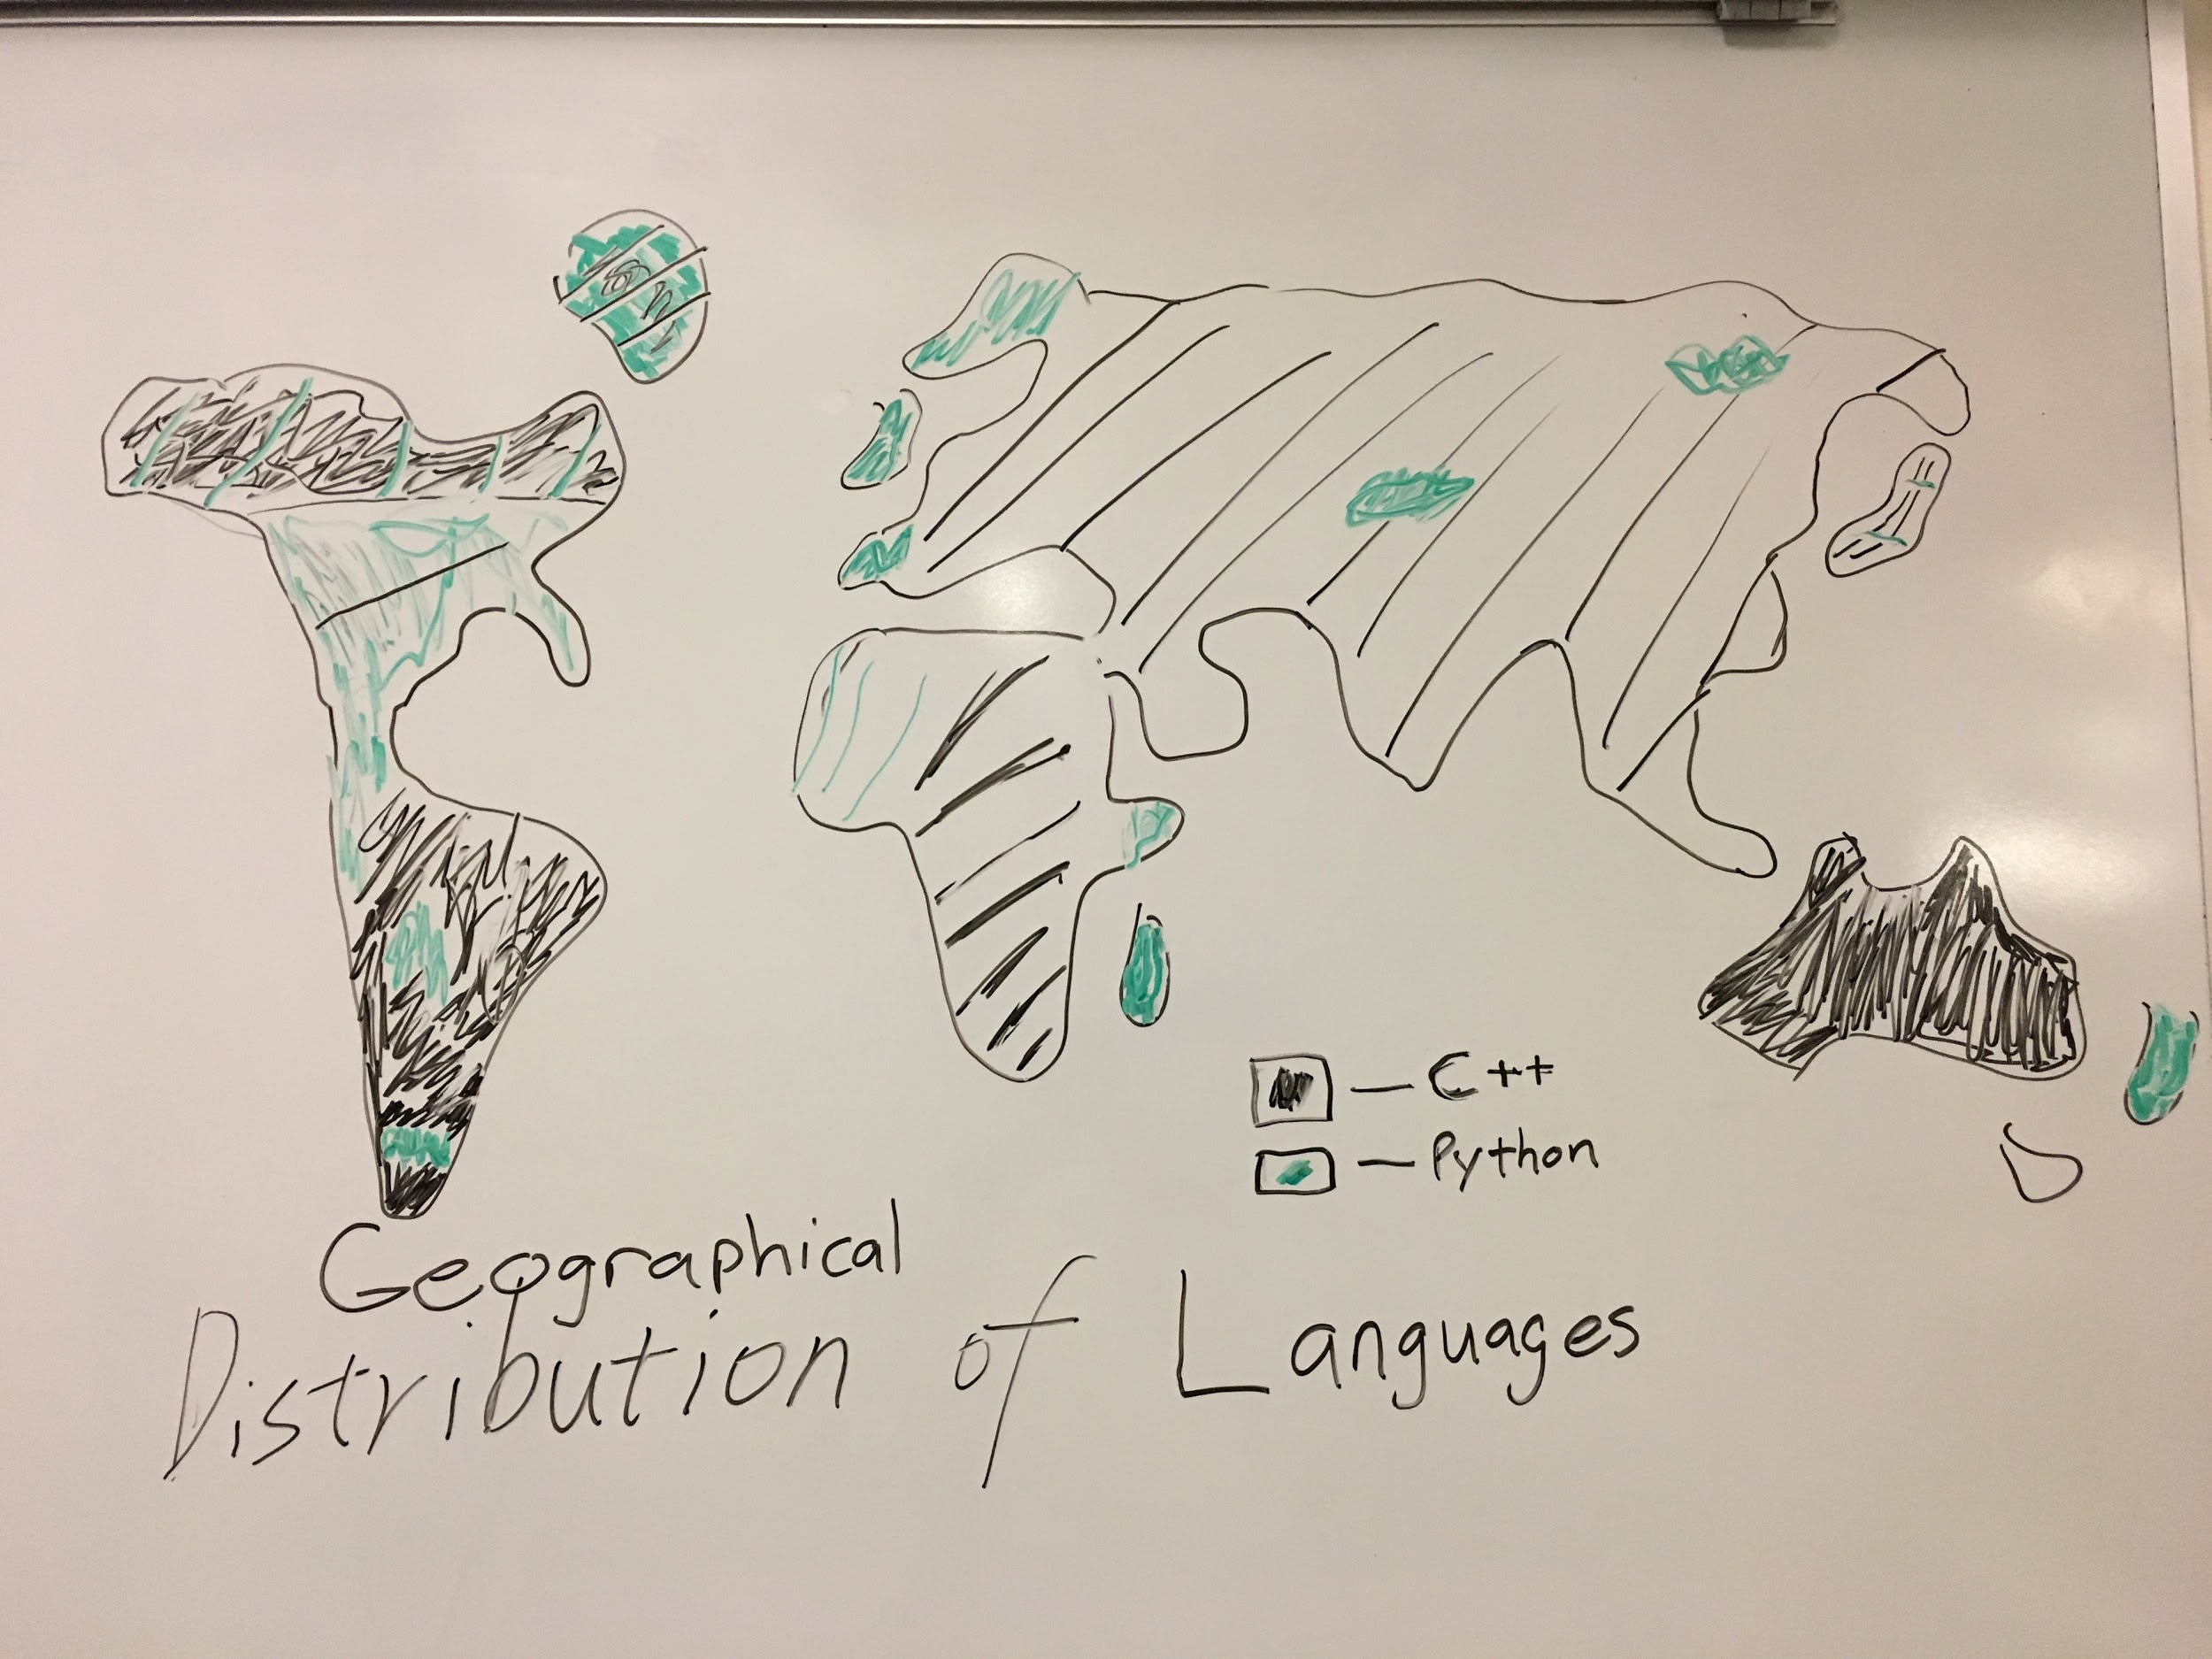 C++
Python
Geographical
Distribution of Languages